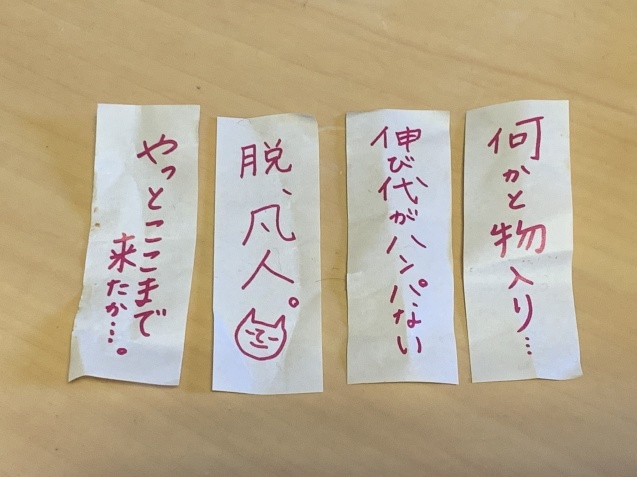 何かと物入り…
伸び代がハンパない
脱、凡人。
やっとここまで
来たか…。